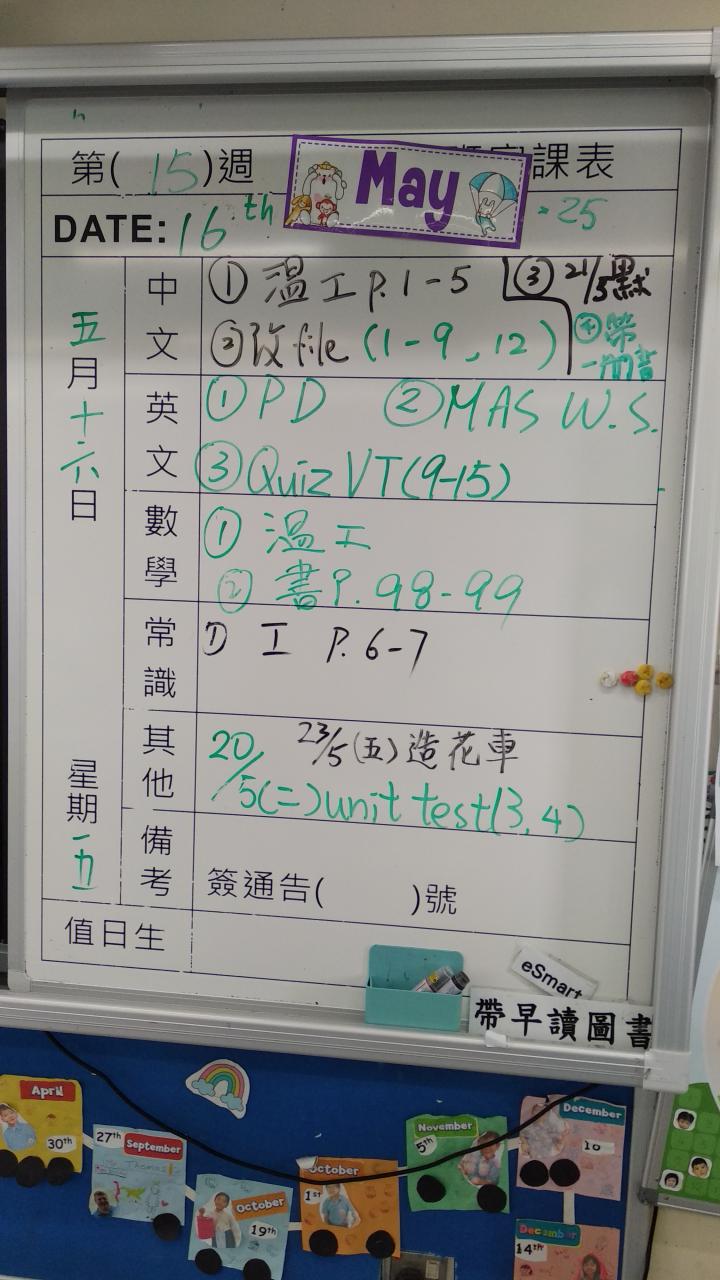 第(15)週
May
課表
DATE: 16th
25
五月十六日
星期五
中文
① 溫工 P.1-5
③ 21/5 默
② 改file (1-9, 12)
④ 帶一冊書
英文
① PD ② MAS W.S.
③ Quiz VT(9-15)
數學
① 溫工
② 書P. 98-99
常識
① 工 P. 6-7
其他
23/5(五)造花車
20/5(二)unit test(3,4)
備考
簽通告( )號
值日生
eSmart
帶早讀圖書
April
30th
27th
September
Thomas
October
19th
October
1st
November
5th
December
10
December
14th